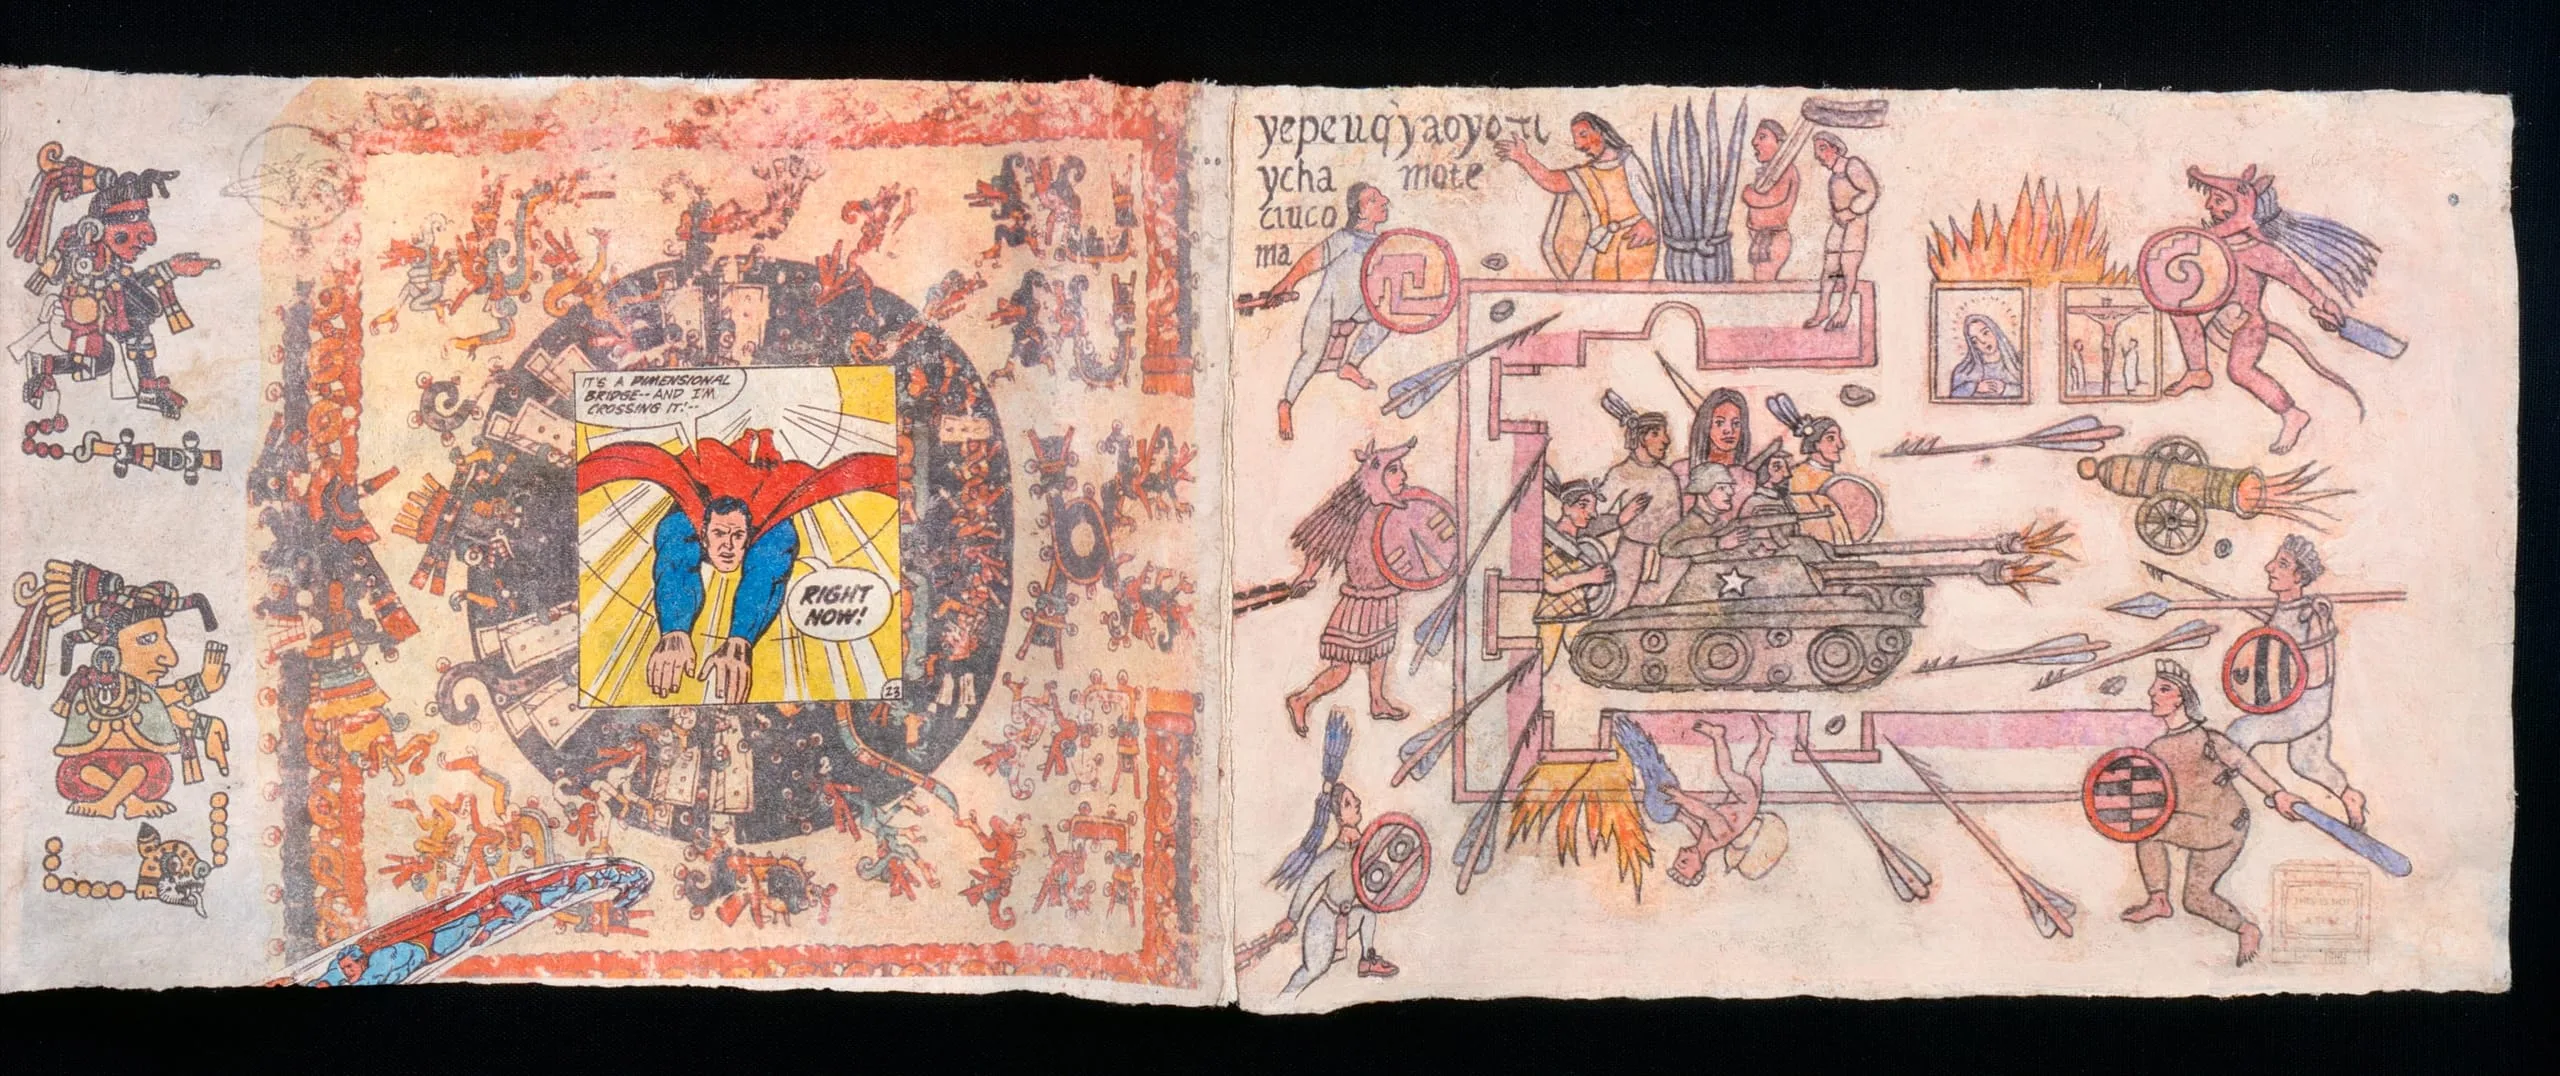 IT'S A DIMENSIONAL
BRIDGE--AND I'M
CROSSING IT!--
RIGHT
NOW!
23
2
yepeuq̀yaoyotl
ycha mote
ciuco
ma